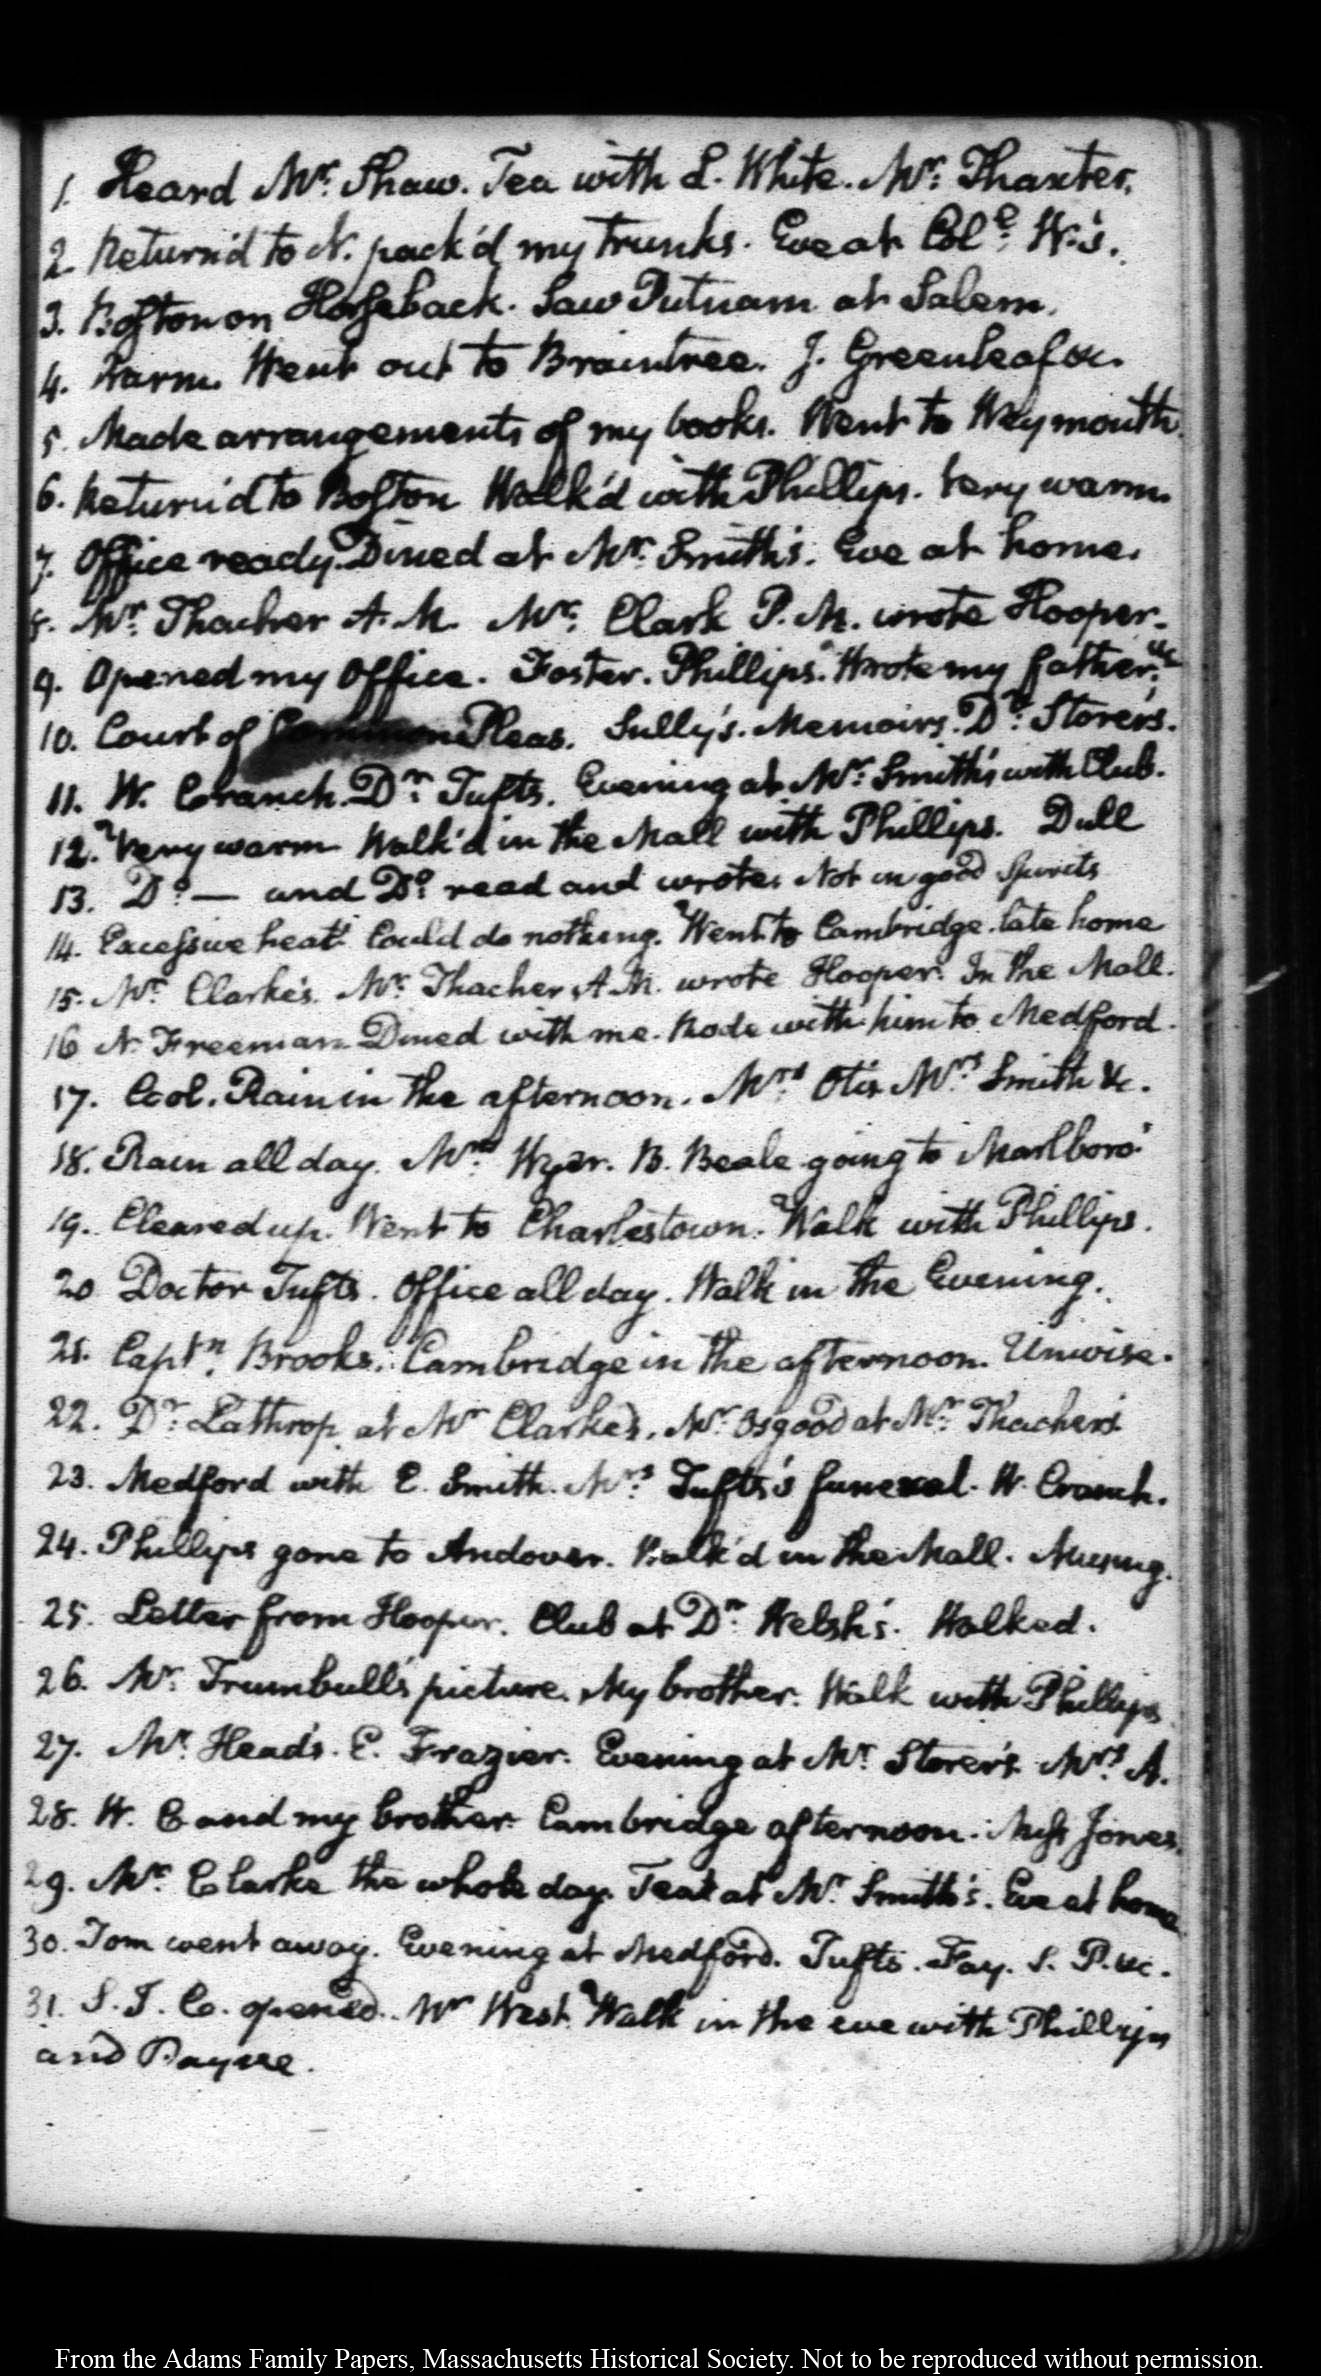 1. Heard Mr. Shaw. Tea with L. White. Mr. Thaxter.
2. Return'd to N. pack'd my trunks. Eve at Coll. W's.
3. Boston on Horseback. Saw Putnam at Salem.
4. Warm. Went out to Braintree. J. Greenleaf &c.
5. Made arrangements of my books. Went to Weymouth.
6. Return'd to Boston Walk'd with Phillips. Very warm.
7. Office ready. Dined at Mr. Smith's. Eve at home.
8. Mr. Thacher A.M. Mr. Clark P.M. wrote Hooper.
9. Opened my Office. Foster. Phillips. Wrote my father. &c
10. Court of Common Pleas. Sully's Memoirs. Dr. Storer's.
11. W. Cranch. Dr. Tufts. Evening at Mr. Smith's with Club.
12. Very warm Walk'd in the Mall with Phillips. Dull
13. Do. — and Do. read and wrote. Not in good Spirits
14. Excessive heat. Could do nothing. Went to Cambridge. late home
15. Mr. Clarke's. Mr. Thacher, A.M. wrote Hooper. In the Mall.
16 N. Freeman Dined with me. Rode with him to Medford.
17. Cool. Rain in the afternoon. Mrs. Otis Mrs. Smith &c.
18. Rain all day. Mrs. Wyer. B. Beale going to Marlboro'
19. Cleared up. Went to Charlestown. Walk with Phillips.
20 Doctor Tufts. Office all day. Walk in the Evening.
21. Captn. Brooks. Cambridge in the afternoon. Unwise.
22. Dr. Lathrop at Mr Clarke's. Mr. Osgood at Mr. Thacher's
23. Medford with E. Smith. Mrs. Tufts's funeral. W. Cranch.
24. Phillips gone to Andover. Walk'd in the Mall. Musing.
25. Letter from Hooper. Club at Dr. Welsh's. Walked.
26. Mr. Trumbull's picture. My brother. Walk with Phillips
27. Mr. Head's. E. Frazier. Evening at Mr. Storer's Mrs. A.
28. W. C and my brother. Cambridge afternoon. Miss Jones.
29. Mr. Clarke the whole day. Tea at Mr. Smith's. Eve at home
30. Tom went away. Evening at Medford. Tufts. Fay. S. P. &c.
31. S. J. C. opened. Mr West. Walk in the eve with Phillips
and Payne.
From the Adams Family Papers, Massachusetts Historical Society. Not to be reproduced without permission.